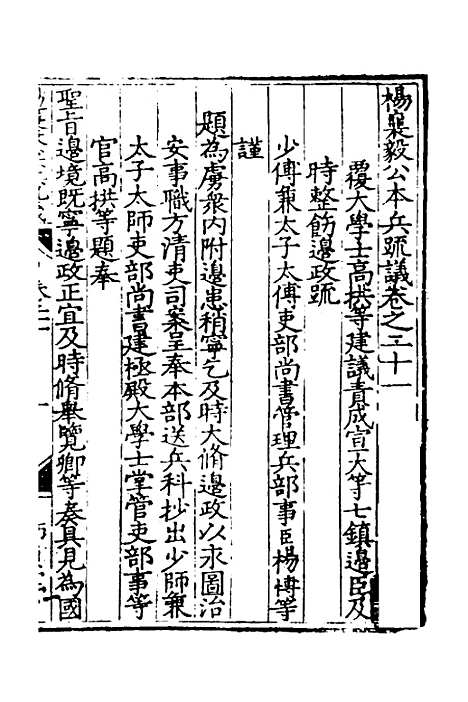 楊襄毅公本兵疏議卷之二十一
覆大學士高拱等建議責成宣大等七鎮邊臣及
時整飭邊政疏
少傅兼太子太傅吏部尚書管理兵部事臣楊博等
謹
題為虜衆内附邊患稍寧乞及時大脩邊政以永圖治
安事職方清吏司案呈奉本部送兵科抄出少師兼
太子太師吏部尚書建極殿大學士掌管吏部事等
官高拱等題奉
聖旨邊境既寧邊政正宜及時脩舉覽卿等奏具見為國